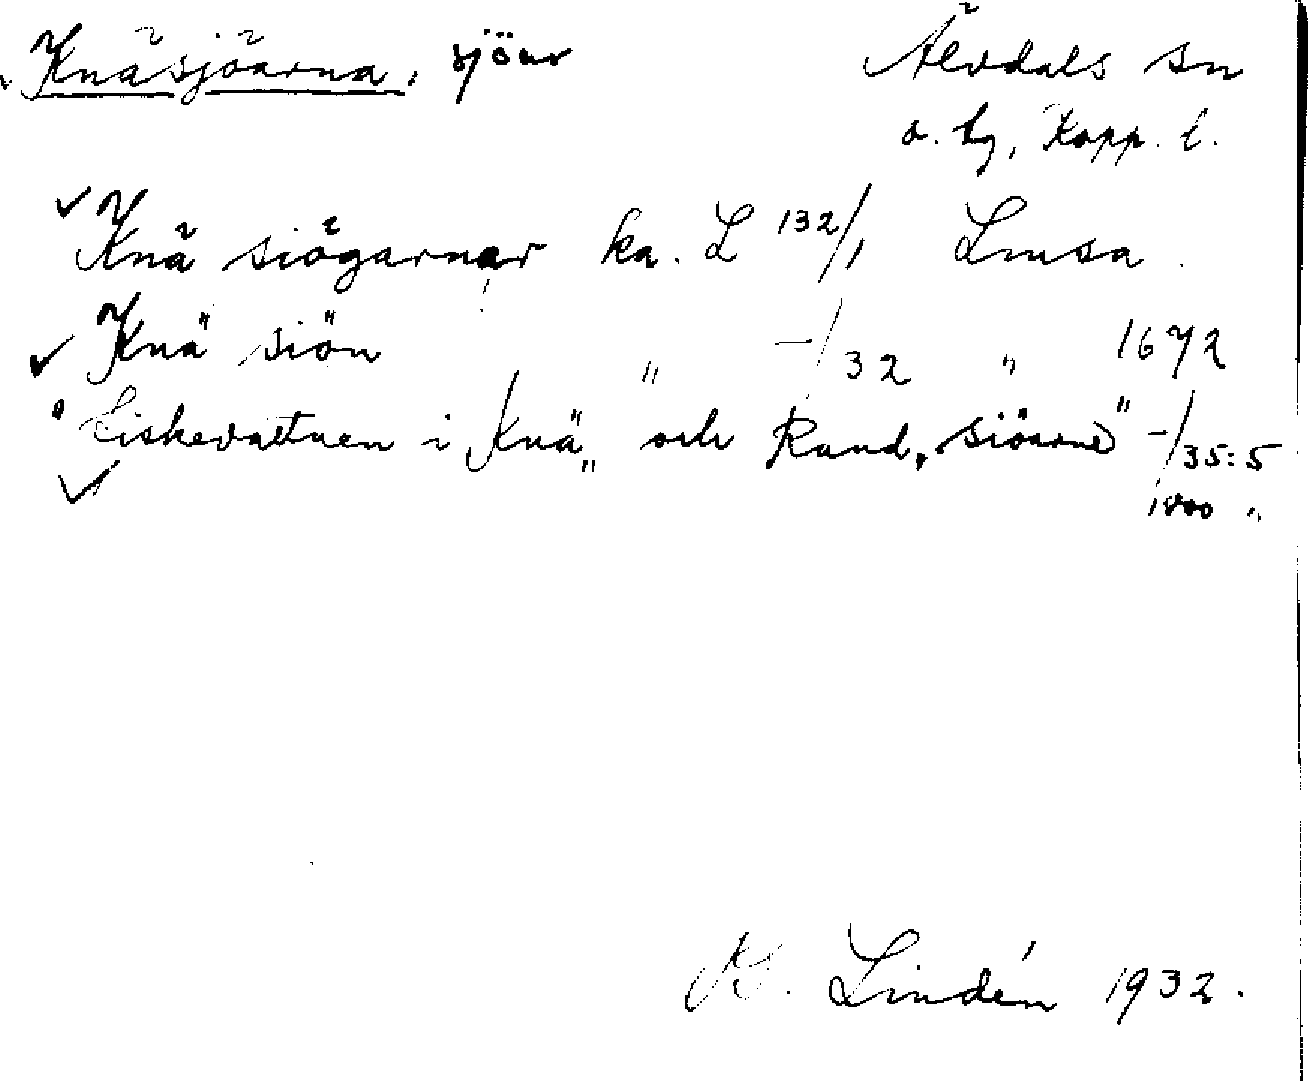 Knäsjöarna, sjöar
Älvdals sn
o. tg, Kopp. l.
Knä siögarnar ka. L 132/1 Lmsa.
Knä siön " -/32 " 1672
"Fiskevattnen i Knä„ och Rand„ siöarne" -/35:5
1800 "
Lindén 1932.